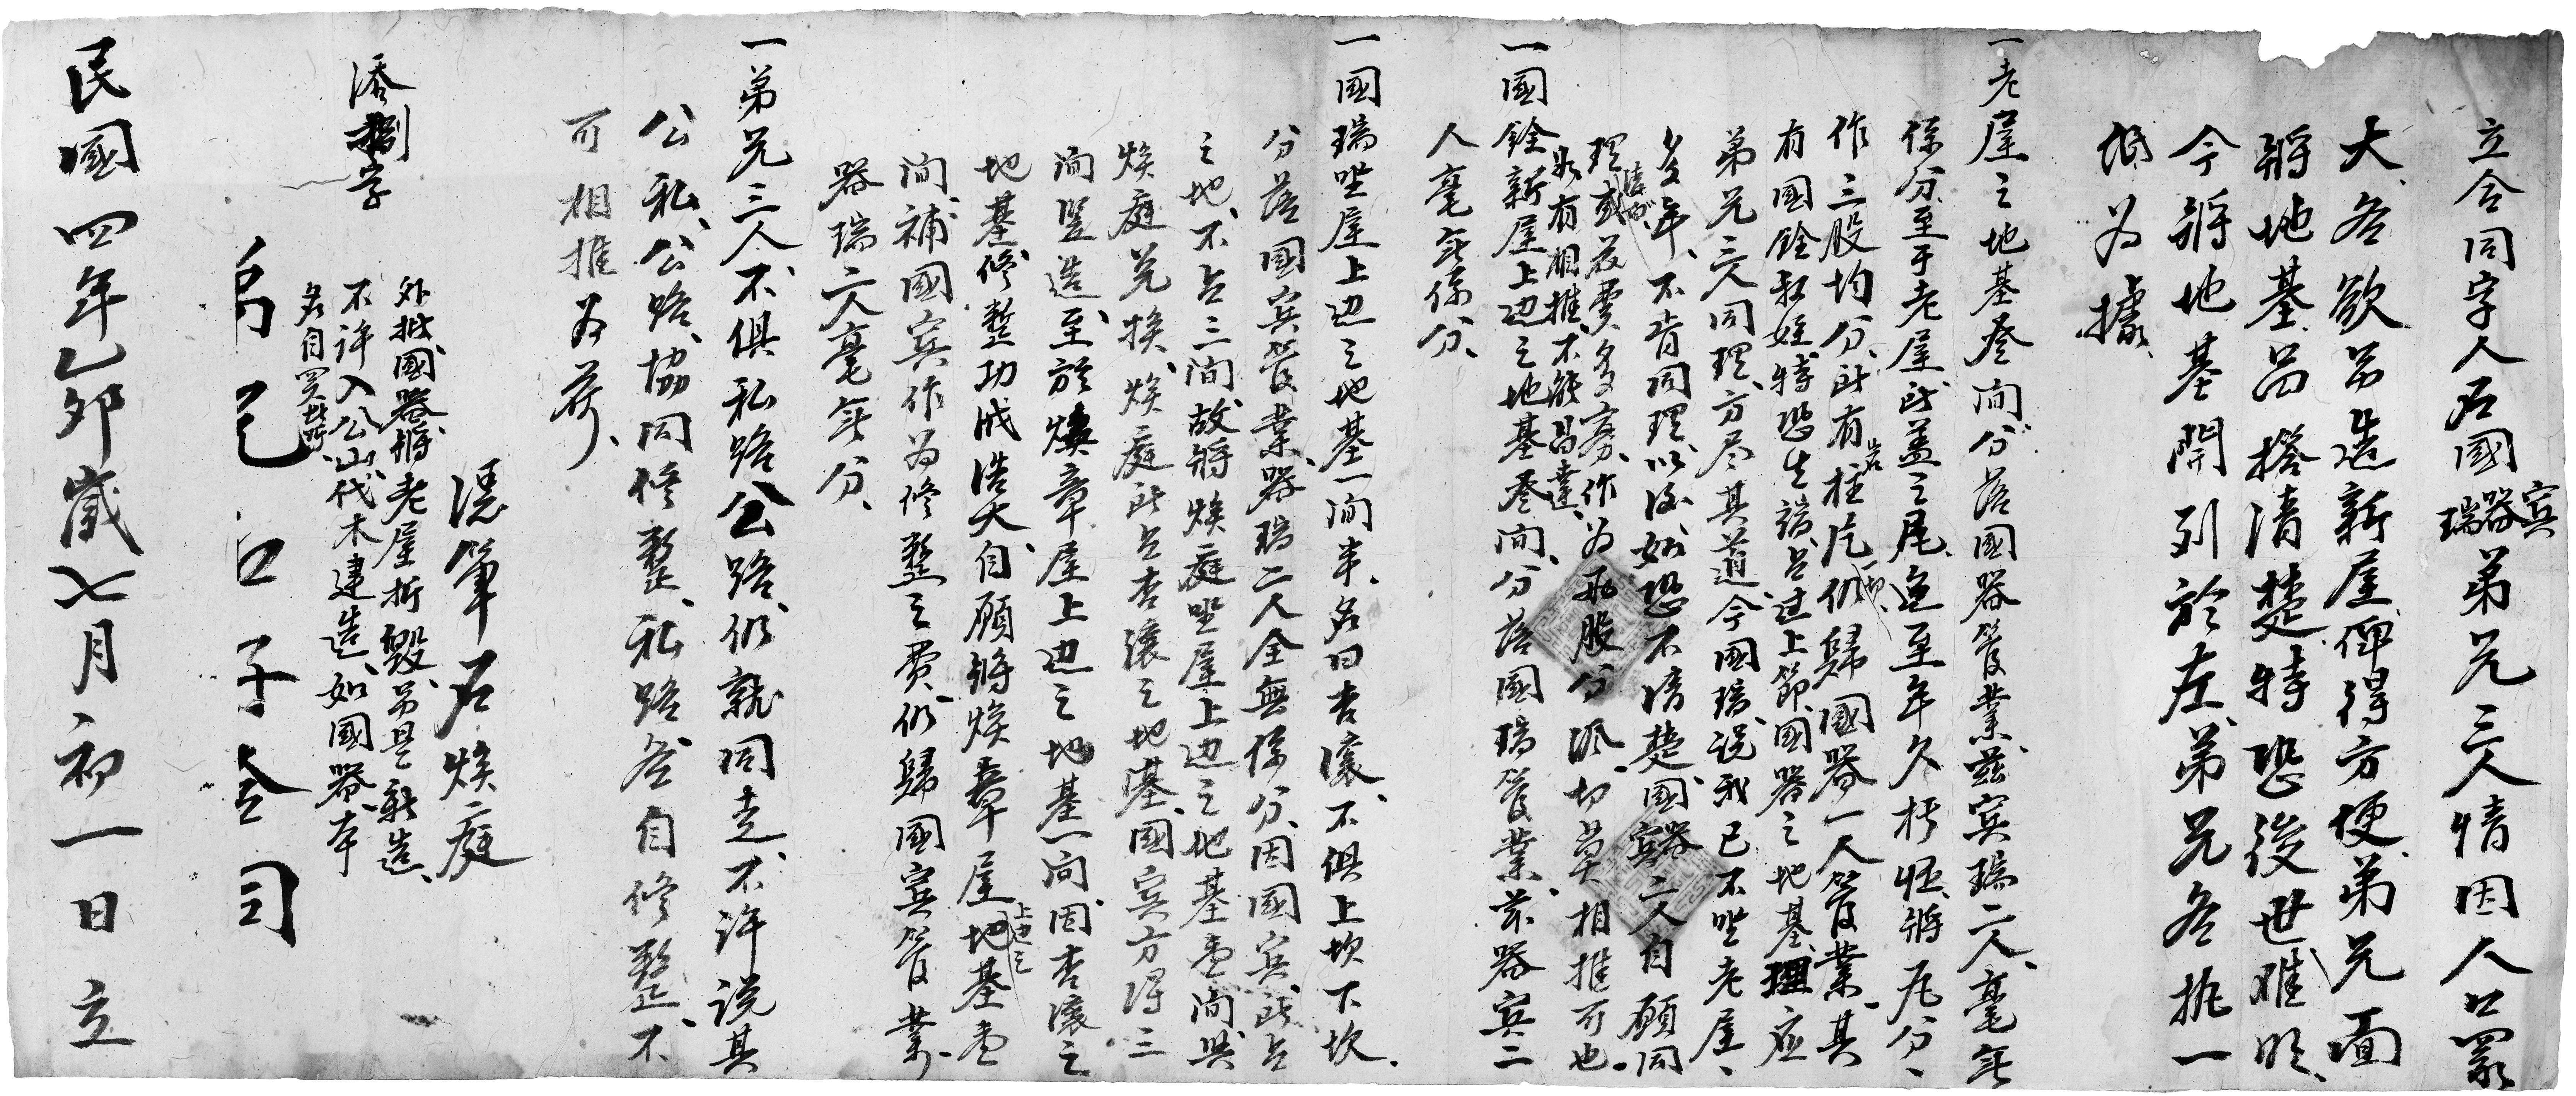 立合同字人石國賓器瑞弟兄三人情因人口眾
大各欲另造新屋俾得方便弟兄面
將地基品搭清楚特恐後世难明
今將地基開列於左弟兄各執一
紙为據
一老屋之地基叁间分落國器管業兹賓瑞二人毫無
係分至于老屋所盖之瓦迨至年久朽怀將瓦分
作三股均分所有柱岩片仍歸國器一人管業其
有國銓叔姪特恐生端占过上節國器之地基理应
弟兄三人同理方尽其道今國瑞说我已不坐老屋
多年不肯同理以後如恐不清楚國器賓二人自願同
理或花费多寡作为两股分派切莫相推可也
如有相推不能昌達
一國銓新屋上边之地基叁间分落國瑞管業兹器賓二
人毫無係分
一國瑞坐屋上边之地基一间半名曰杏濠不俱上坎下坎
分落國賓管業器瑞二人全無係分因國賓所占
之地不占三间故將焕庭坐屋上边之地基壹间與
焕庭兑换焕庭所占杏濠之地基國賓方得三
间竖造至於焕章屋上边之地基一间因杏濠之
地基修整功成浩大自願將焕章屋上边之地基壹
间補國賓作为修整之费仍歸國賓管業
器瑞二人毫無分
一弟兄三人不俱私路公路仍就同走不许说其
公私公路協同修整私路各自修整不
可相推为荷
憑筆石焕庭
外批國器將老屋折毀另是新造
不许入公山伐木建造如國器本
名自買
添捌字
民國四年乙卯歲七月初一日立